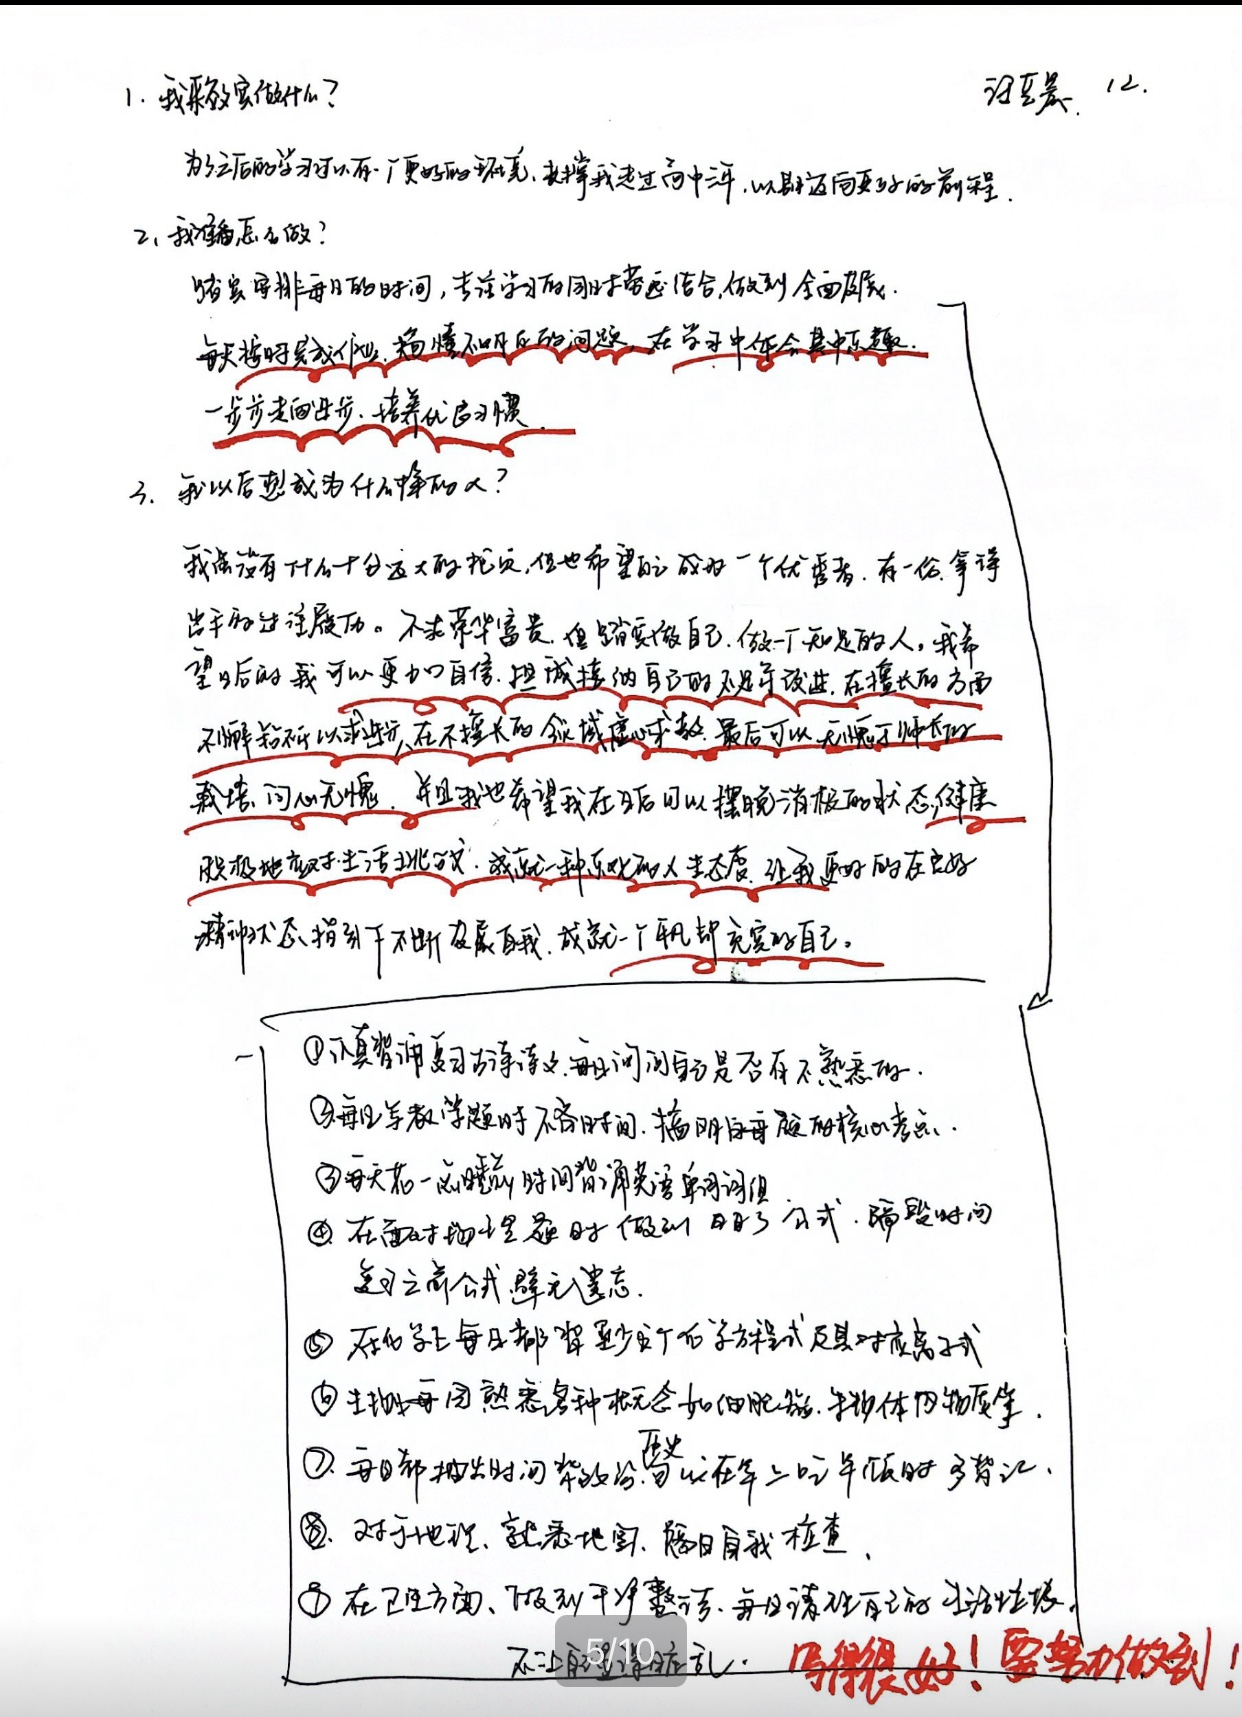 1. 我来效实做什么？
12.
为了之后的学习可以有一个更好的环境，支撑我走过高中三年，以期迈向更好的前程．
2、我准备怎么做？
踏实安排每日的时间，专注学习的同时劳逸结合，做到全面发展．
每天按时完成作业，搞懂不明白的问题，在学习中体会其中乐趣．
一步步走向进步．培养优良习惯．
3、我以后想成为什么样的人？
我虽没有什么十分远大的抱负，但也希望自己成为一个优秀者．有一份拿得
出手的过往履历。不求荣华富贵，但踏实做自己，做一个知足的人。我希
望日后的我可以更加自信，坦诚接纳自己的不足并改进，在擅长的方面
不懈钻研以求进步，在不擅长的领域虚心求教．最后可以无愧于师长的
栽培，问心无愧．并且我也希望我在日后可以摆脱消极的状态，健康
积极地应对生活挑战．成就一种乐观的人生态度．让我更好的在良好
精神状态指引下不断发展自我．成就一个平凡却充实的自己。
①认真背诵复习古诗文，每日问问自己是否有不熟悉的．
②每日在数学题时不吝时间．搞明白每题的核心考点．
③每天花一点睡前时间背诵英语单词词组
④在面对物理题时做到明了公式．隔段时间
复习之前公式，避免遗忘．
⑤在化学上每日都掌握至少五个化学方程式及其对应离子式
⑥生物每周熟悉各种概念如细胞器．生物体内物质等．
⑦．每日都抽出时间背政治．历史可以在早上吃早饭时多背记．
⑧．对于地理、熟悉地图，隔日自我检查．
⑨在卫生方面、做到干净整洁．每日清理自己的生活垃圾．
5/10
写得很好！要努力做到！